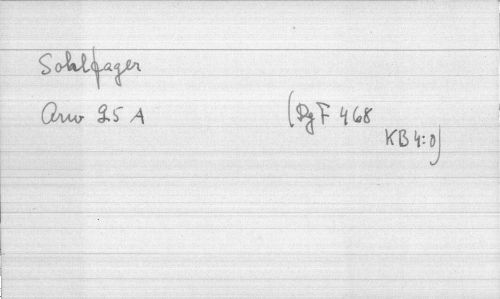 Solfager
Arw 25 A
(DgF 468
KB 4:o)